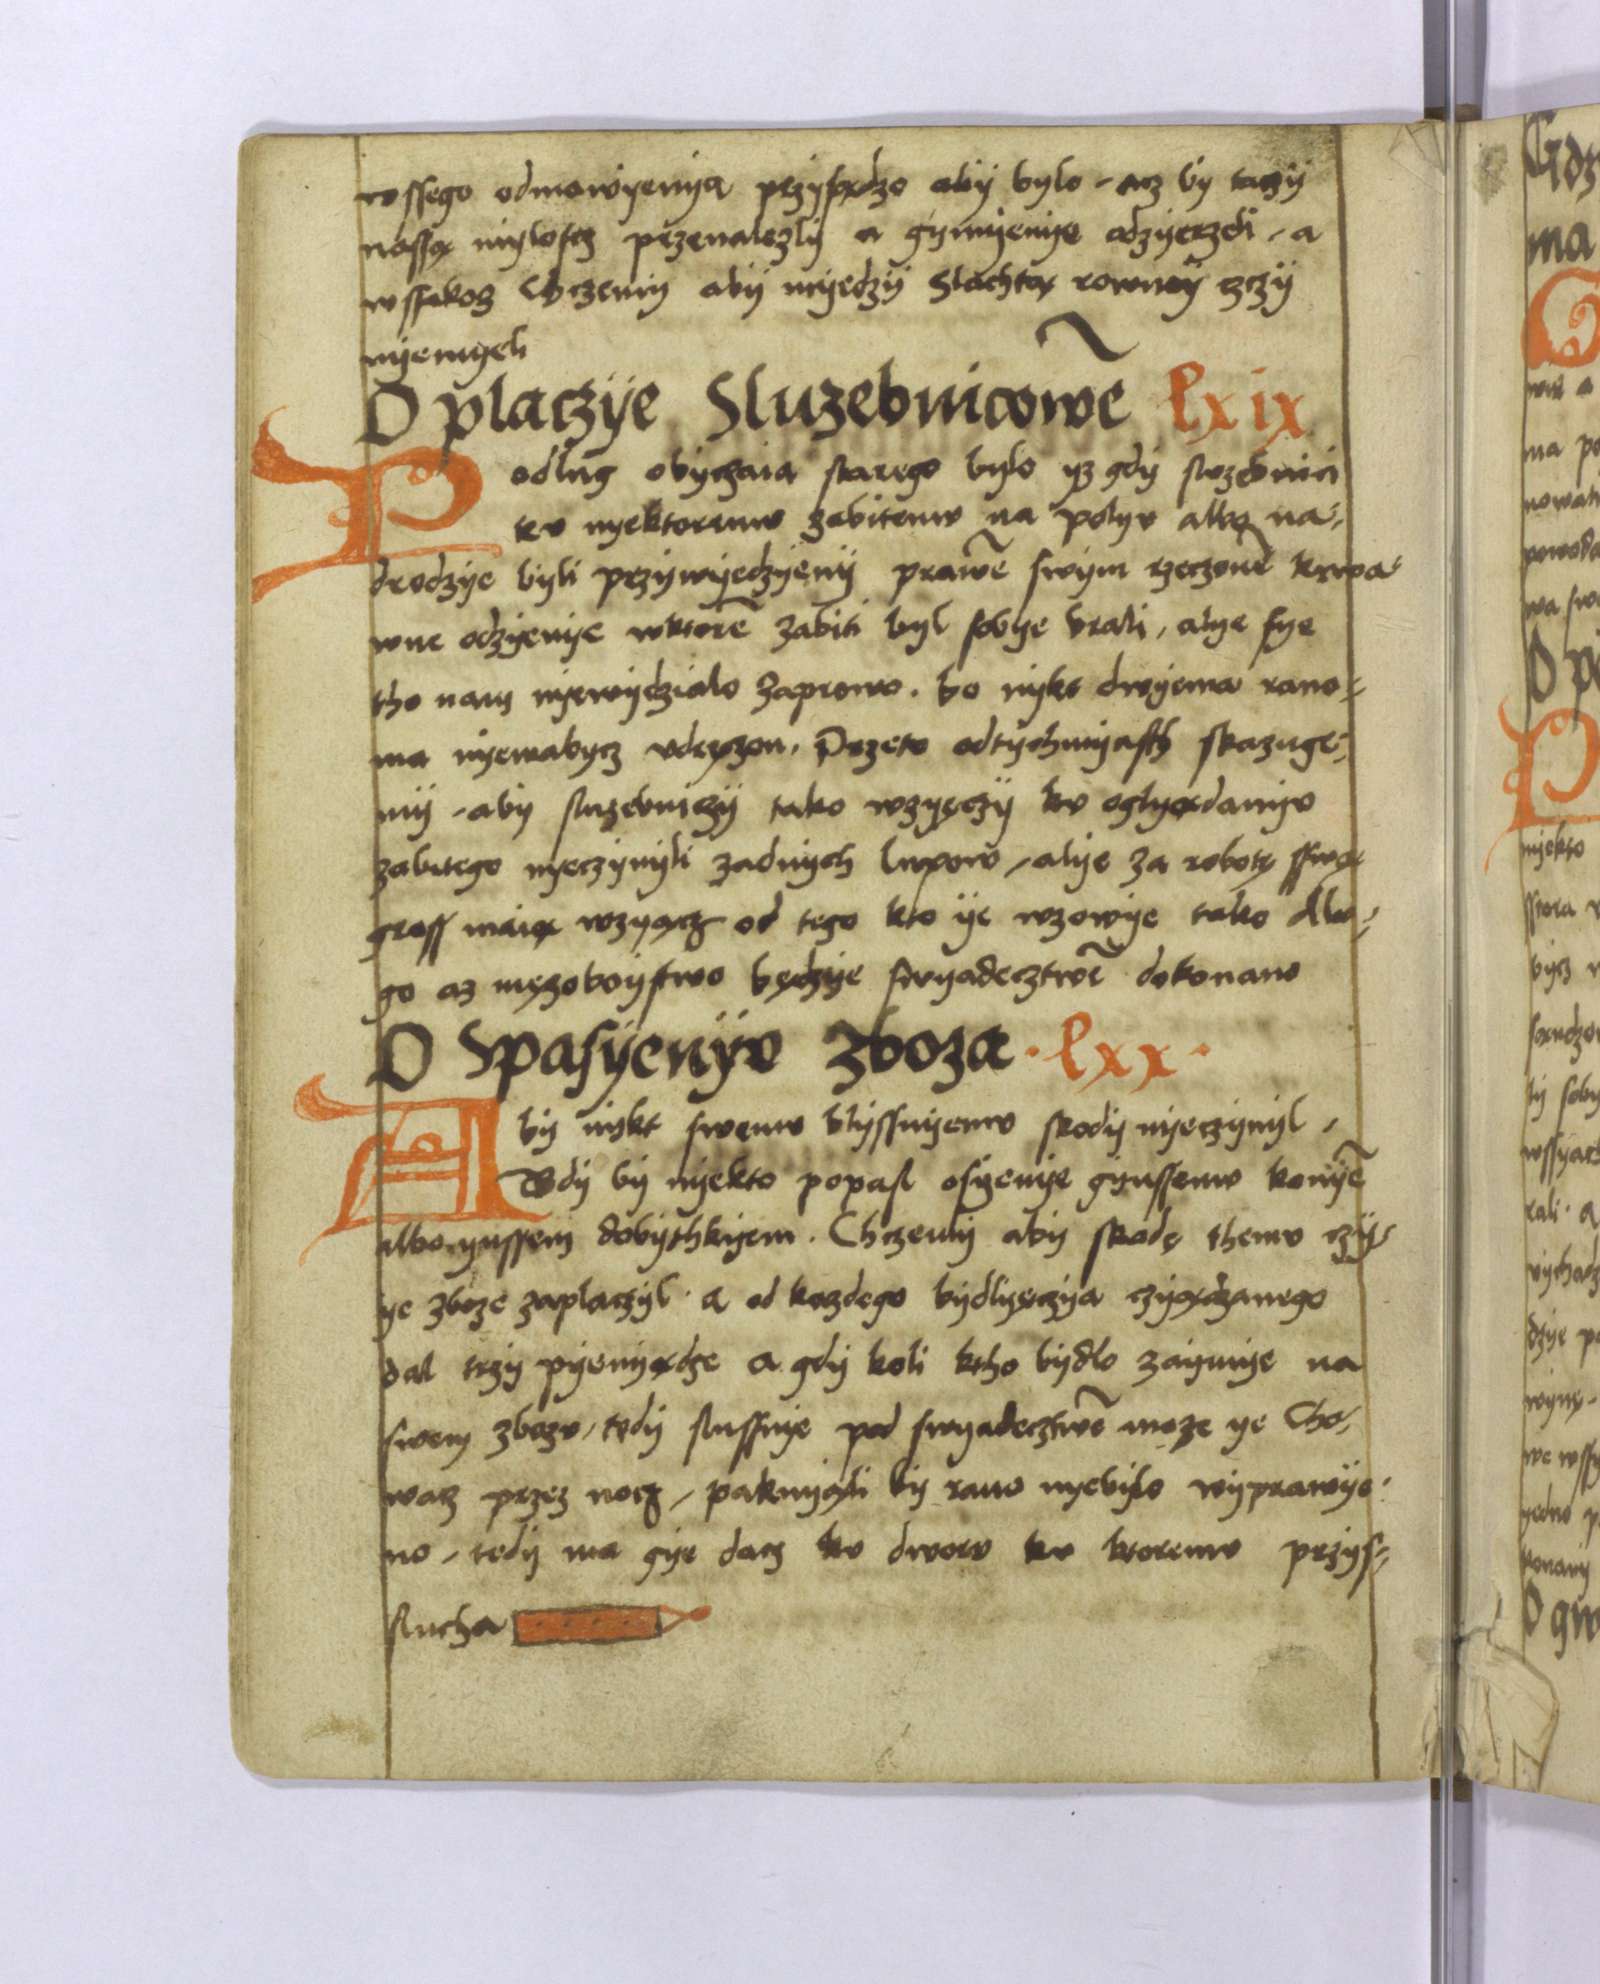 wssego odmowyenya przysądzo abÿ bylo – acz bÿ taczÿ
nassą myloscz przenalezlÿ a gymyenye odzyerzeli – a
wssakoz Chczemÿ abÿ myedzÿ Slachtą rownoÿ czÿ
nyenych
O placzÿe Sluzebnicowē lxix
Podlug obyczaia starego bylo yz gdÿ sluzebnici
kv nyektoremv zabitemv na polyv albo na-
drodzye byli przywyedzyenÿ prawē swym rzeczonē krwa-
wne odzyenye wktorē zabiti byl sobye brali, alye sye
tho nam nyewydzialo zaprawo. bo nykt dwyema rano-
ma nyemabycz vdrączon. Przeto odtychmyasth skazuge-
mÿ – abÿ sluzebniczÿ tako wzyęczÿ kv oglyądanyv
zabitego nyeczynyli zadnych lupow – alye za robotę sswą
gross maią wzyącz od tego kto ÿe wzowye tako dlu-
go az męzoboÿstwo będzye swyadecztwē dokonano
O Spasÿenÿv zboza · lxx ·
Abÿ nykt swemv blyssnyemv skodÿ nyeczynyl –
Gdÿ bÿ nyekto popasl osyenye gynssemv konyē
albo ynssem dobythkyem. Chczemÿ abÿ skodę themv czÿ-
ye zboze zaplaczyl. a od kozdego bydlyęczya czyądzanego
dal trzy pyenyądze a gdÿ koli ktho bydlo zaymye na
swem zbozv, tedÿ slussnye pod swyadecztwē moze ye Cho-
wacz przez nocz – paknyąli bÿ rano nyebylo wÿprawÿo-
no – tedÿ ma gye dacz kv dworv kv ktoremv przys-
slucha